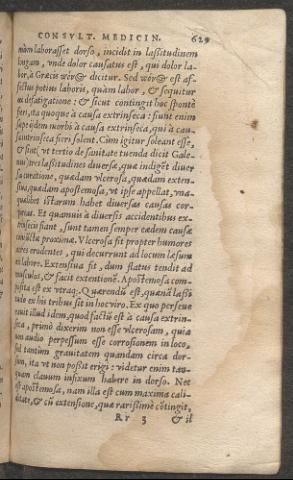 CONSVLT. MEDICIN. 629
nam laborasset dorso, incidit in lassitudinem
, vnde dolor causatus est, qui dolor la-
bor, à Græcis dicitur. Sed est af-
fectus potius laboris, quàm labor, & sequitur
ex defatigatione: & sicut contingit hoc spontè
fieri, ita quoque à causa extrinseca: fiunt enim
sæpe ijdem morbi à causa extrinseca, qui à cau-
sa intrinseca fieri solent. Cùm igitur soleant esse,
& sint, vt tertio de sanitate tuenda dicit Gale-
nus, tres lassitudines diuersæ, quæ indiget diuer
sa curatione, quædam vlcerosa, quædam exten-
siua, quædam apostemosa, vt ipse appellat, vna-
quælibet istarum habet diuersas causas cor-
poreas. Et quamuis à diuersis accidentibus ex-
trinsecis fiant, sunt tamen semper eædem causæ
coniunctæ proximæ. Vlcerosa fit propter humores
acres erodentes, qui decurrunt ad locum læsum
ex labore. Extensiua fit, dum flatus tendit ad
musculos, & facit extensionẽ. Apostemosa com-
posita est ex vtraq;. Quærendũ est, quænã lassi-
tudo ex his tribus sit in hoc viro. Ex quo perseue
rauit illud idem, quod factũ est à causa extrin-
seca, primò dixerim non esse vlcerosam, quia
non audio perpessum esse corrosionem in loco,
sed tantùm grauitatem quandam circa dor-
sum, ita vt non possit erigi: videtur enim tan-
quam clauum infixum habere in dorso. Nec
est apostemosa, nam illa est cum maxima cali-
ditate, & cũ extensione, quæ rarissimè cõtingit,
Rr 3 & il